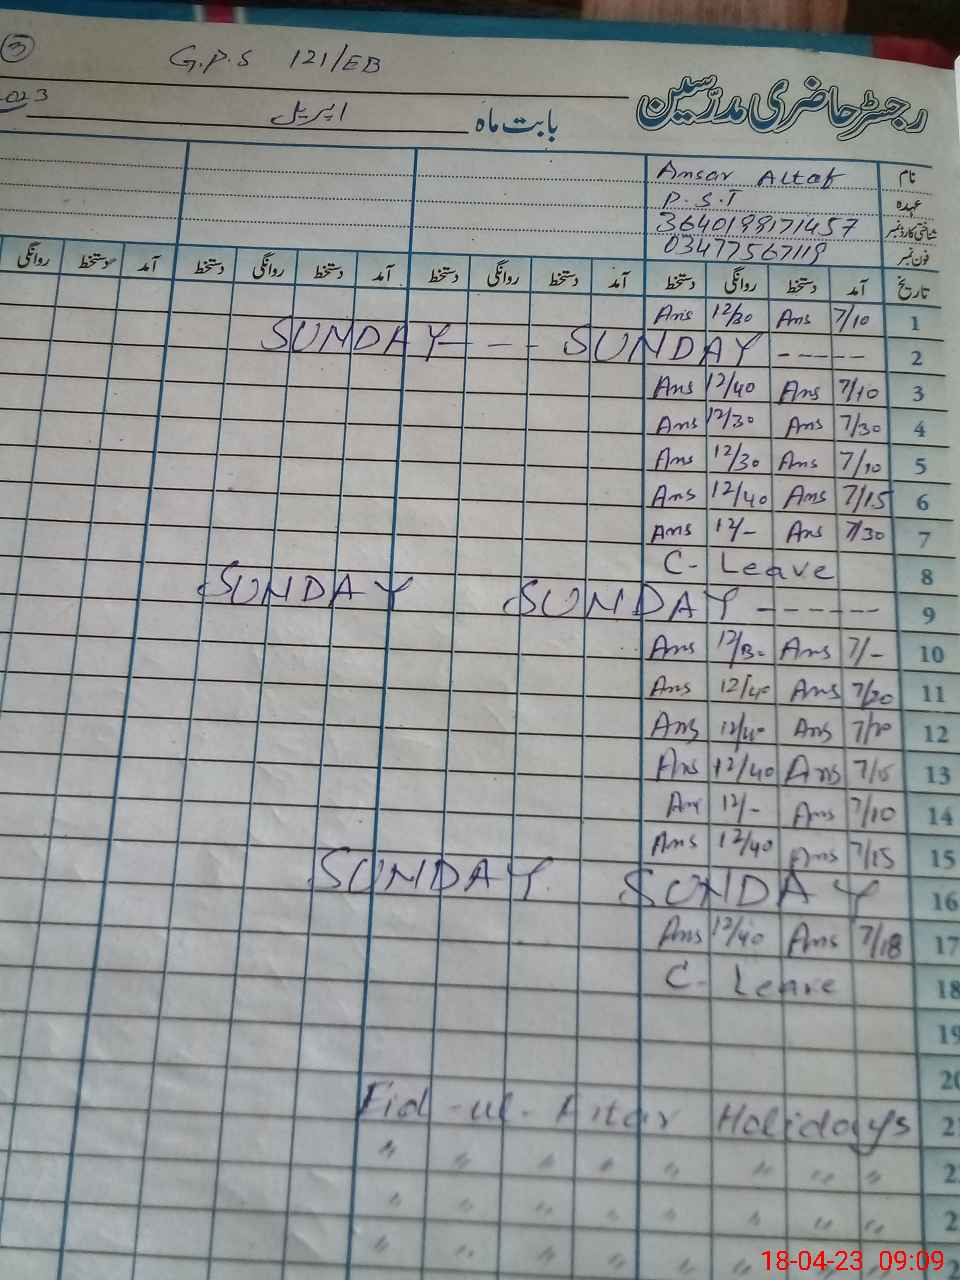 3
G.P.S 121/EB
رجسٹر حاضری مدرسین
بابت ماہ اپریل 2023
نام Ansar Altaf
عہدہ P.S.T
شناختی کارڈ نمبر 3640199171457
فون نمبر 03477567119
تاریخ آمد دستخط روانگی دستخط آمد دستخط روانگی دستخط آمد دستخط روانگی دستخط آمد دستخط روانگی
Ans 12/30 Ans 7/10 1
SUNDAY - - - SUNDAY - - - - - 2
Ans 12/40 Ans 7/10 3
Ans 12/30 Ans 7/30 4
Ans 12/30 Ans 7/10 5
Ans 12/40 Ans 7/15 6
Ans 12/- Ans 7/30 7
C- Leave 8
SUNDAY SUNDAY - - - - - - 9
Ans Ans 7/- 10
Ans 12/40 Ans 7/20 11
Ans 12/40 Ans 12
Ans 12/40 Ans 13
Ans 12/- Ans 7/10 14
Ans 12/40 Ans 7/15 15
SUNDAY SUNDAY 16
Ans 12/40 Ans 7/18 17
C- Leave 18
19
20
Eid-ul-Fitar Holidays 21
" " " " " " " "
" " " " " " " "
" " " " " " " "
18-04-23 09:09